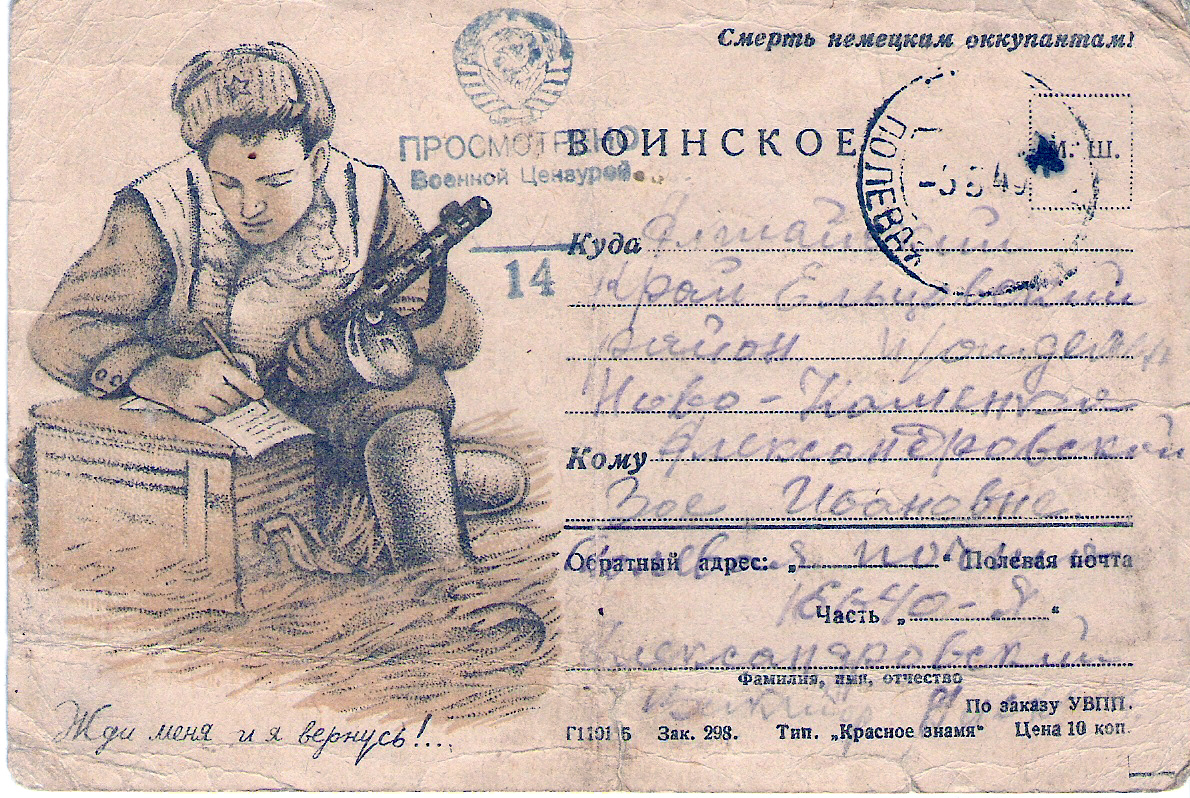 Смерть немецким оккупантам!
ПРОСМОТРЕНО
Военной Цензурой
14
ВОИНСКОЕ
М. Ш.
ПОЛЕВАЯ
Куда Алтайский
Край Ельцовский
район
Ново-Каменка
Кому Александровской
Зое Ивановне
Обратный адрес: „ “ Полевая почта
Полевая почта
Часть „ “
Александровский
Фамилия, имя, отчество
По заказу УВПП.
Зак. 298. Тип. „Красное знамя“ Цена 10 коп.
Жди меня и я вернусь!...